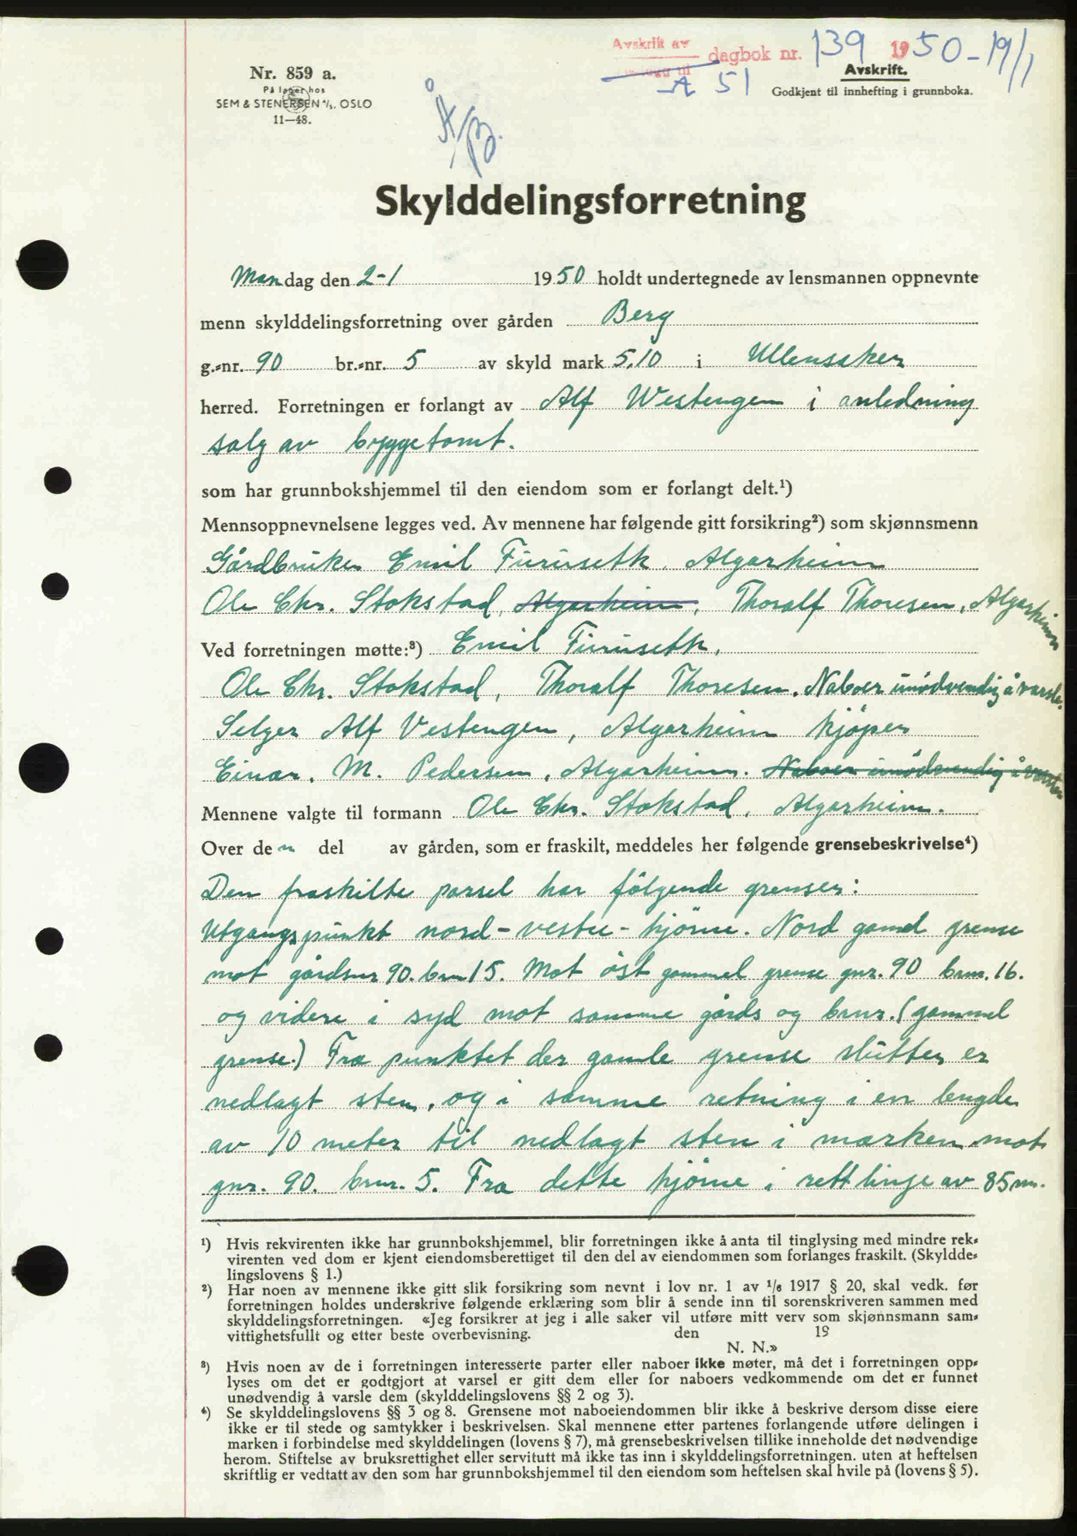 Avskrift av dagbok nr. 139 1950 - 19/1
A 51
Avskrift.
Godkjent til innhefting i grunnboka.
Nr. 859 a.
På lager hos
SEM & STENERSEN A/S. OSLO
11—48.
Skylddelingsforretning
Mandag den 2-1 1950 holdt undertegnede av lensmannen oppnevnte
menn skylddelingsforretning over gården Berg
g.-nr. 90 br.-nr. 5 av skyld mark 5.10 i Ullensaker
herred. Forretningen er forlangt av Alf Westengen i anledning
salg av byggetomt.
som har grunnbokshjemmel til den eiendom som er forlangt delt.¹)
Mennsoppnevnelsene legges ved. Av mennene har følgende gitt forsikring²) som skjønnsmenn
Gårdbruker Emil Furuseth, Algarheim
Ole Chr. Stokstad, Algarheim, Thoralf Thoresen, Algarheim
Ved forretningen møtte:³) Emil Furuseth,
Ole Chr. Stokstad, Thoralf Thoresen. Naboer unødvendig å varsle.
Selger Alf Vestengen, Algarheim kjøper
Einar. M. Pedersen, Algarheim. Naboer unødvendig å varsle
Mennene valgte til formann Ole Chr. Stokstad, Algarheim.
Over den del av gården, som er fraskilt, meddeles her følgende grensebeskrivelse⁴)
Den fraskilte parsel har følgende grenser:
Utgangspunkt nord-vestre-hjørne. Nord gamel grense
mot gårdsnr 90. brn 15. Mot øst gammel grense gnr. 90 brnr. 16.
og videre i syd mot samme gårds og brnr. (gammel
grense.) Fra punktet der gamle grense slutter er
nedlagt sten, og i samme retning i en lengde
av 10 meter til nedlagt sten i marken mot
gnr. 90. brnr. 5. Fra dette hjørne i rett linje av 85 m.
¹) Hvis rekvirenten ikke har grunnbokshjemmel, blir forretningen ikke å anta til tinglysing med mindre rek-
virenten ved dom er kjent eiendomsberettiget til den del av eiendommen som forlanges fraskilt. (Skyldde-
lingslovens § 1.)
²) Har noen av mennene ikke gitt slik forsikring som nevnt i lov nr. 1 av 1/6 1917 § 20, skal vedk. før
forretningen holdes underskrive følgende erklæring som blir å sende inn til sorenskriveren sammen med
skylddelingsforretningen. «Jeg forsikrer at jeg i alle saker vil utføre mitt verv som skjønnsmann sam-
vittighetsfullt og etter beste overbevisning. den 19
N. N.»
³) Hvis noen av de i forretningen interesserte parter eller naboer ikke møter, må det i forretningen opp-
lyses om det er godtgjort at varsel er gitt dem eller for naboers vedkommende om det er funnet
unødvendig å varsle dem (skylddelingslovens §§ 2 og 3).
⁴) Se skylddelingslovens §§ 3 og 8. Grensene mot naboeiendommen blir ikke å beskrive dersom disse eiere
ikke er til stede og samtykker i beskrivelsen. Skal mennene etter partenes forlangende utføre delingen i
marken i forbindelse med skylddelingen (lovens § 7), må grensebeskrivelsen tillike inneholde det nødvendige
herom. Stiftelse av bruksrettighet eller servitutt må ikke tas inn i skylddelingsforretningen. uten at heftelsen
skriftlig er vedtatt av den som har grunnbokshjemmel til den eiendom som heftelsen skal hvile på (lovens § 5).